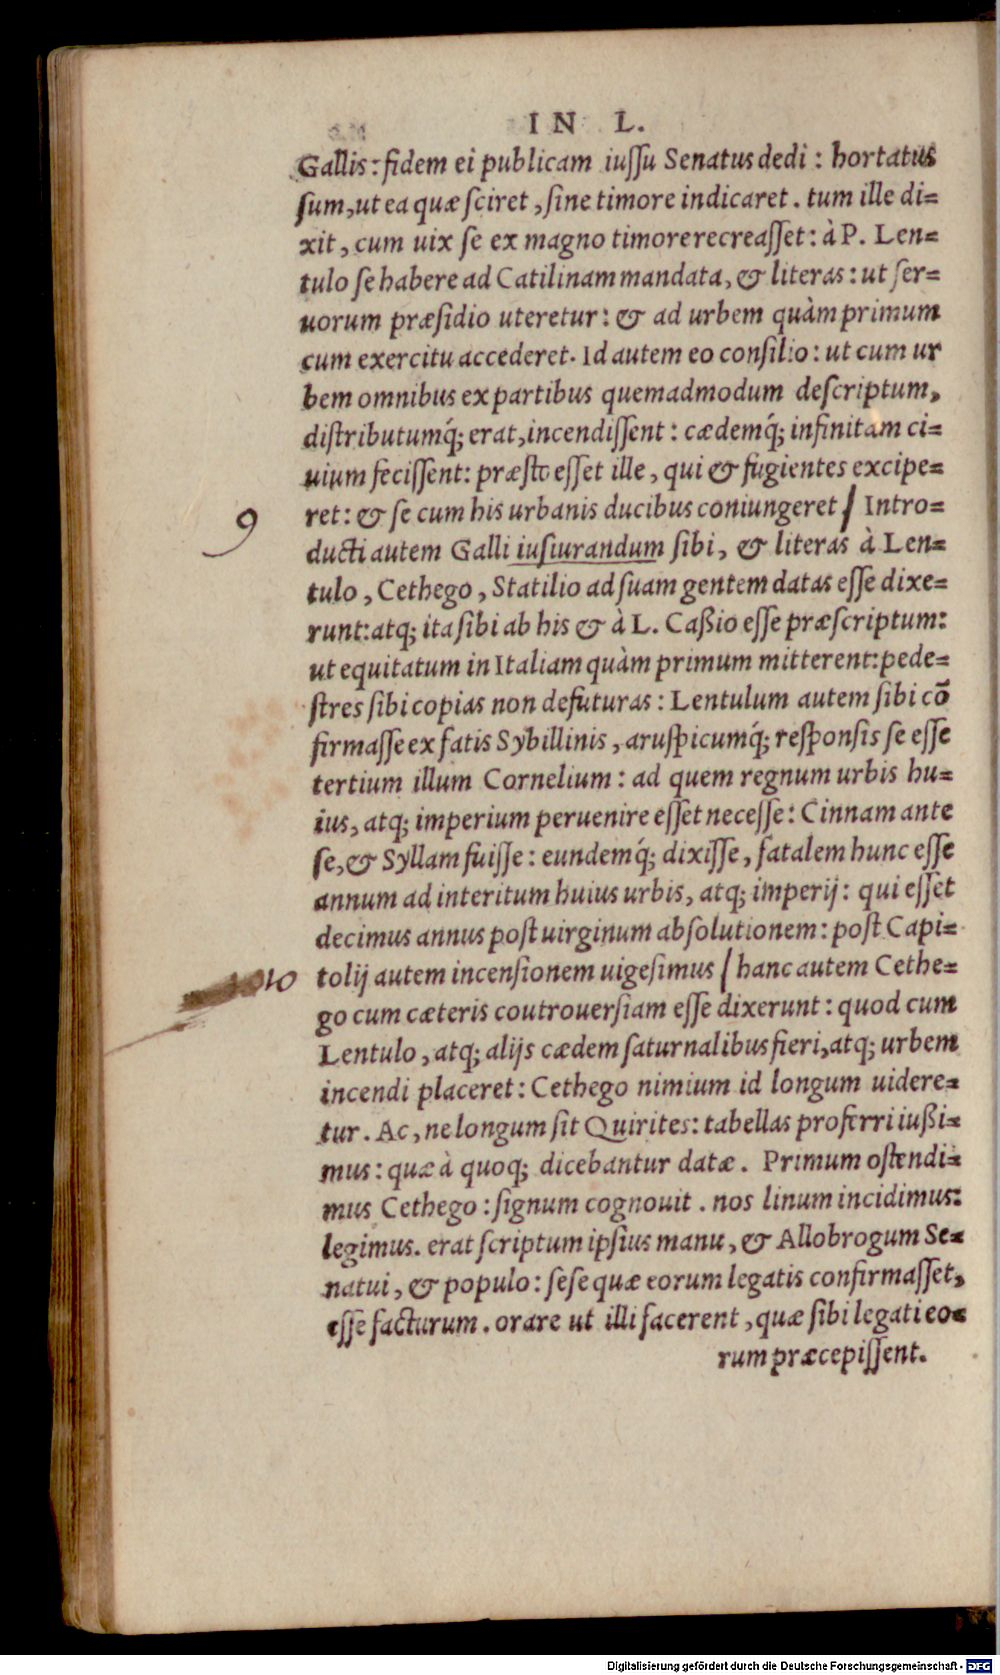 IN L.
Gallis: fidem ei publicam iussu Senatus dedi: hortatus
sum, ut ea quæ sciret, sine timore indicaret. tum ille di=
xit, cum uix se ex magno timore recreasset: à P. Len=
tulo se habere ad Catilinam mandata, & literas: ut ser=
uorum præsidio uteretur: & ad urbem quàm primum
cum exercitu accederet. Id autem eo consilio: ut cum ur
bem omnibus ex partibus quemadmodum descriptum,
distributumq́; erat, incendissent: cædemq́; infinitam ci=
uium fecissent: præsto esset ille, qui & fugientes excipe=
9 ret: & se cum his urbanis ducibus coniungeret / Intro=
ducti autem Galli iusiurandum sibi, & literas à Len=
tulo, Cethego, Statilio ad suam gentem datas esse dixe=
runt: atq; ita sibi ab his & à L. Caßio esse præscriptum:
ut equitatum in Italiam quàm primum mitterent: pede=
stres sibi copias non defuturas: Lentulum autem sibi cõ
firmasse ex fatis Sybillinis, aruspicumq́; responsis se esse
tertium illum Cornelium: ad quem regnum urbis hu=
ius, atq; imperium peruenire esset necesse: Cinnam ante
se, & Syllam fuisse: eundemq́; dixisse, fatalem hunc esse
annum ad interitum huius urbis, atq; imperij: qui esset
decimus annus post uirginum absolutionem: post Capi=
10 tolij autem incensionem uigesimus / hanc autem Cethe=
go cum cæteris coutrouersiam esse dixerunt: quod cum
Lentulo, atq; alijs cædem saturnalibus fieri, atq; urbem
incendi placeret: Cethego nimium id longum uidere=
tur. Ac, ne longum sit Quirites: tabellas proferri iußi=
mus: quæ à quoq; dicebantur datæ. Primum ostendi=
mus Cethego: signum cognouit. nos linum incidimus:
legimus. erat scriptum ipsius manu, & Allobrogum Se=
natui, & populo: sese quæ eorum legatis confirmasset,
esse facturum. orare ut illi facerent, quæ sibi legati eo=
rum præcepissent.
Digitalisierung gefördert durch die Deutsche Forschungsgemeinschaft - DFG